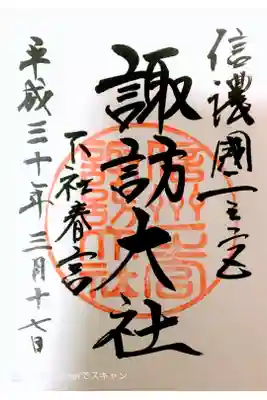 信濃國一之宮
諏訪大社
下社春宮
平成三十年三月十七日
でスキャン